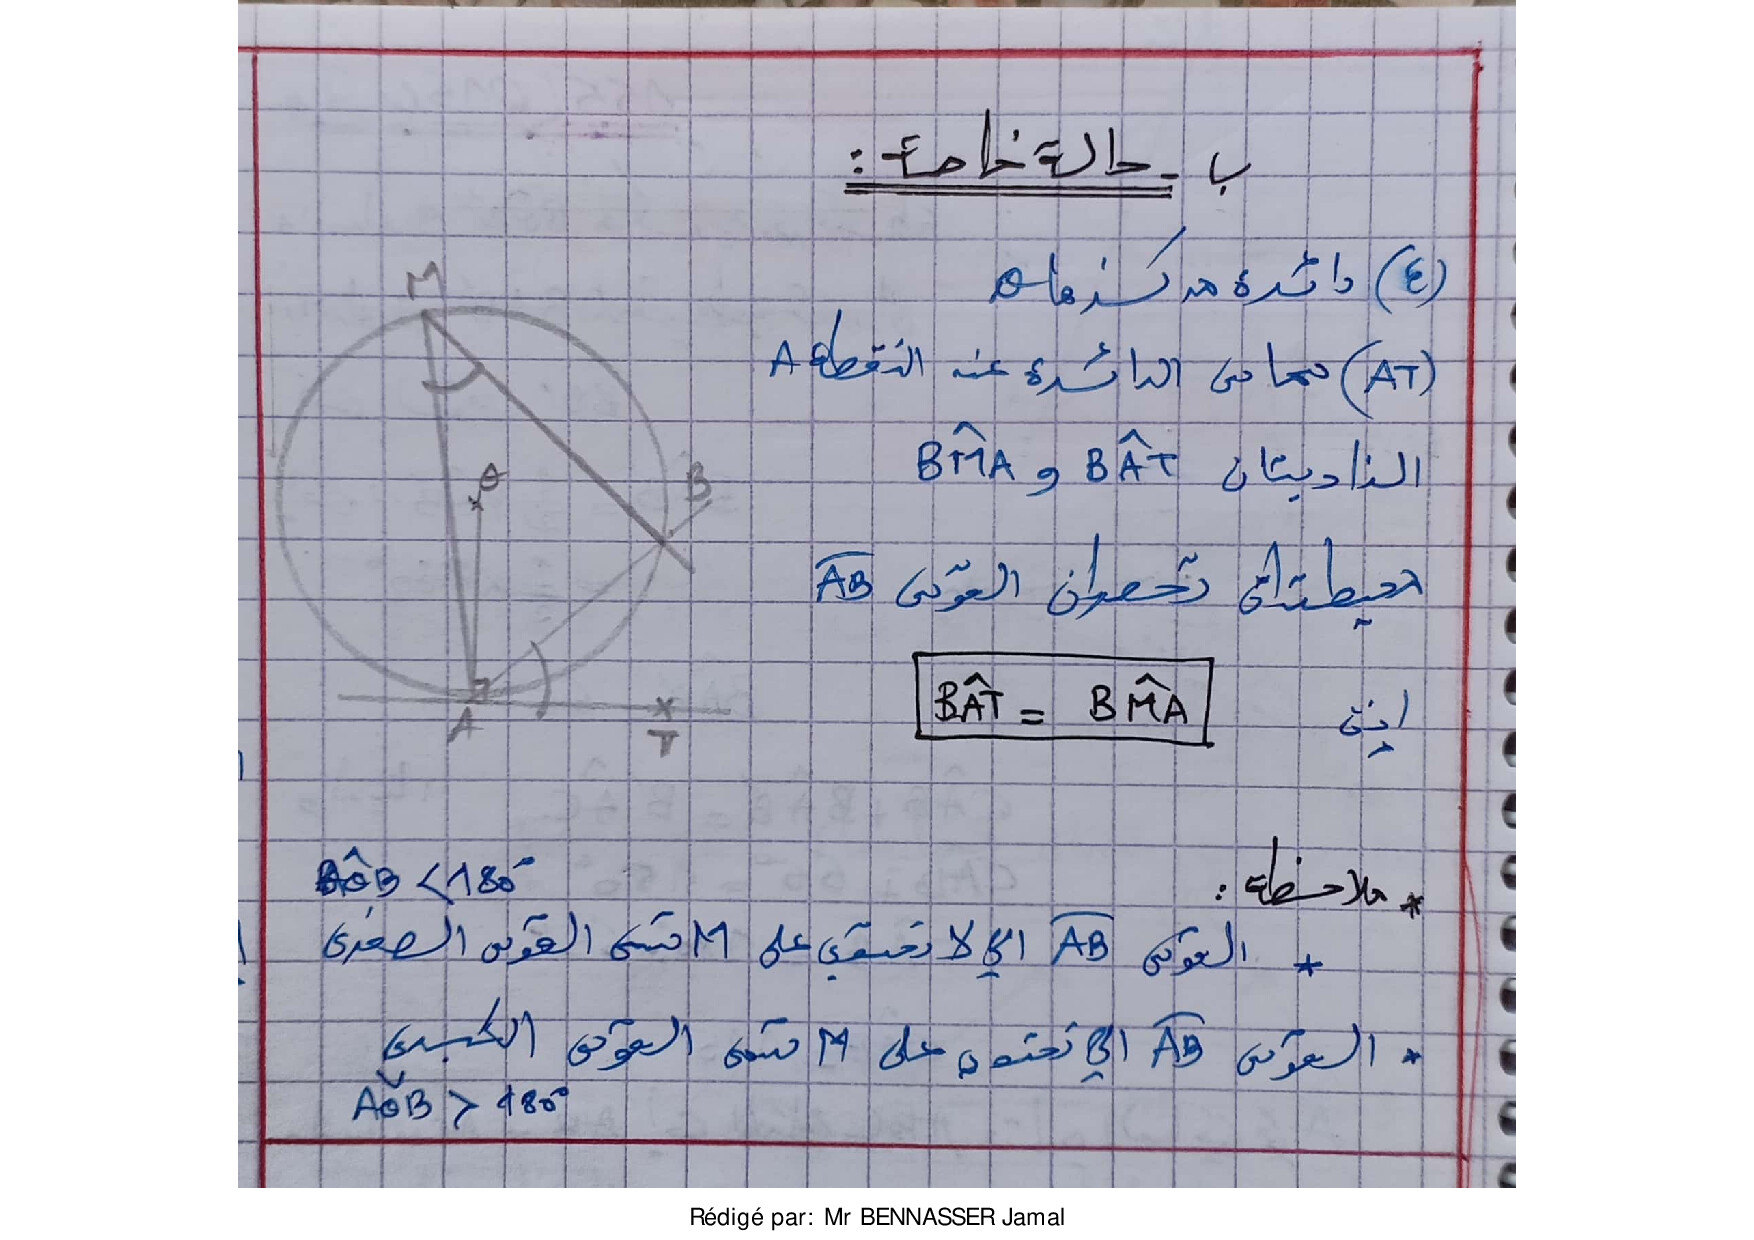 ب - حالة خاصة :
(ع) دائرة مركزها O
(AT) مماس الدائرة عند النقطة A
الزاويتان BÂT و BM̂A
محيطيتان تحصران القوس AB
إذن
BÂT = BM̂A
M
O
B
A
T
* ملاحظة :
AÔB < 180°
* القوس AB التي لا تحتوي على M تسمى القوس الصغرى
* القوس AB التي تحتوي على M تسمى القوس الكبرى
AǑB > 180°
Rédigé par: Mr BENNASSER Jamal